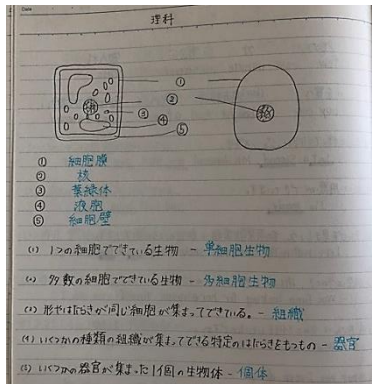 Date
理科
①
②
③
④
⑤
① 細胞膜
② 核
③ 葉緑体
④ 液胞
⑤ 細胞壁
(1) 1つの細胞でできている生物 - 単細胞生物
(2) 多数の細胞でできている生物 - 多細胞生物
(3) 形やはたらきが同じ細胞が集まってできている。- 組織
(4) いくつかの種類の組織が集まってできる特定のはたらきをもつもの - 器官
(5) いくつかの器官が集まった1個の生物体 - 個体